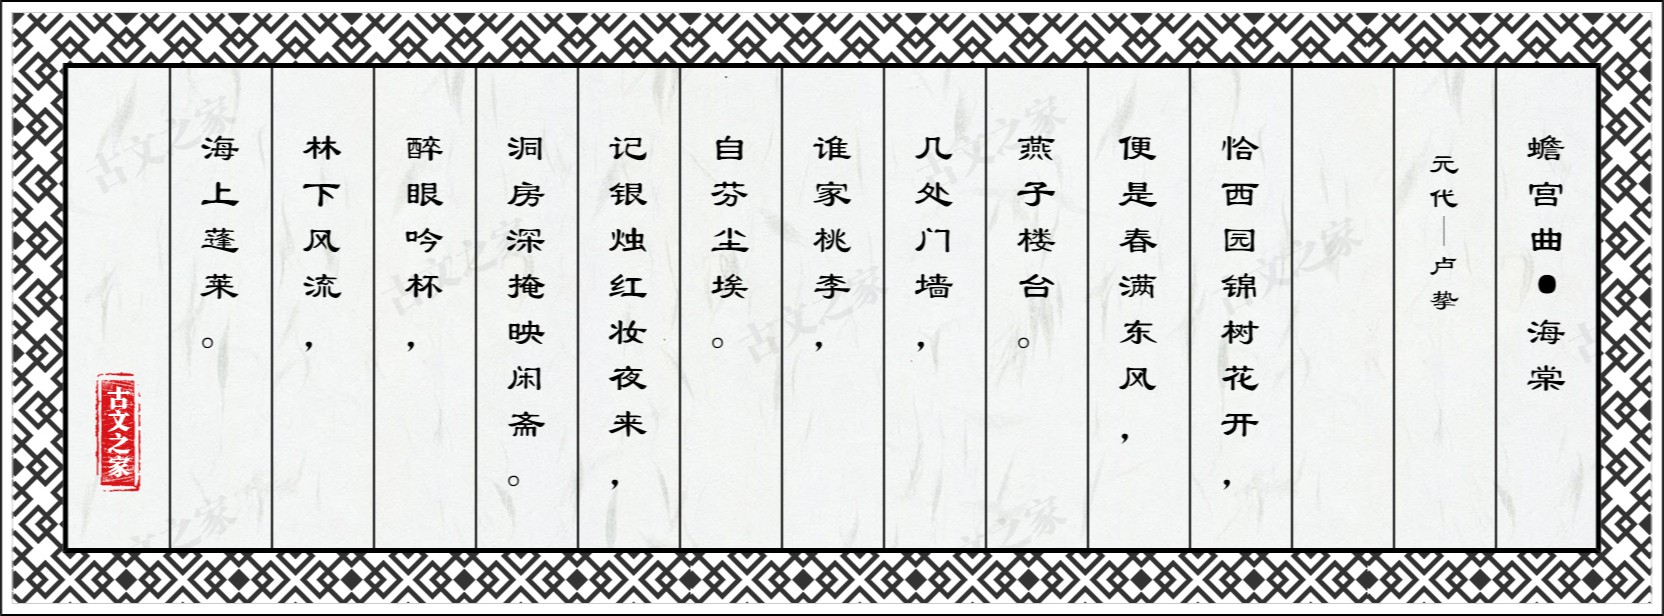 蟾宫曲●海棠
元代—卢挚
恰西园锦树花开，
便是春满东风，
燕子楼台。
几处门墙，
谁家桃李，
自芬尘埃。
记银烛红妆夜来，
洞房深掩映闲斋。
醉眼吟杯，
林下风流，
海上蓬莱。
古文之家